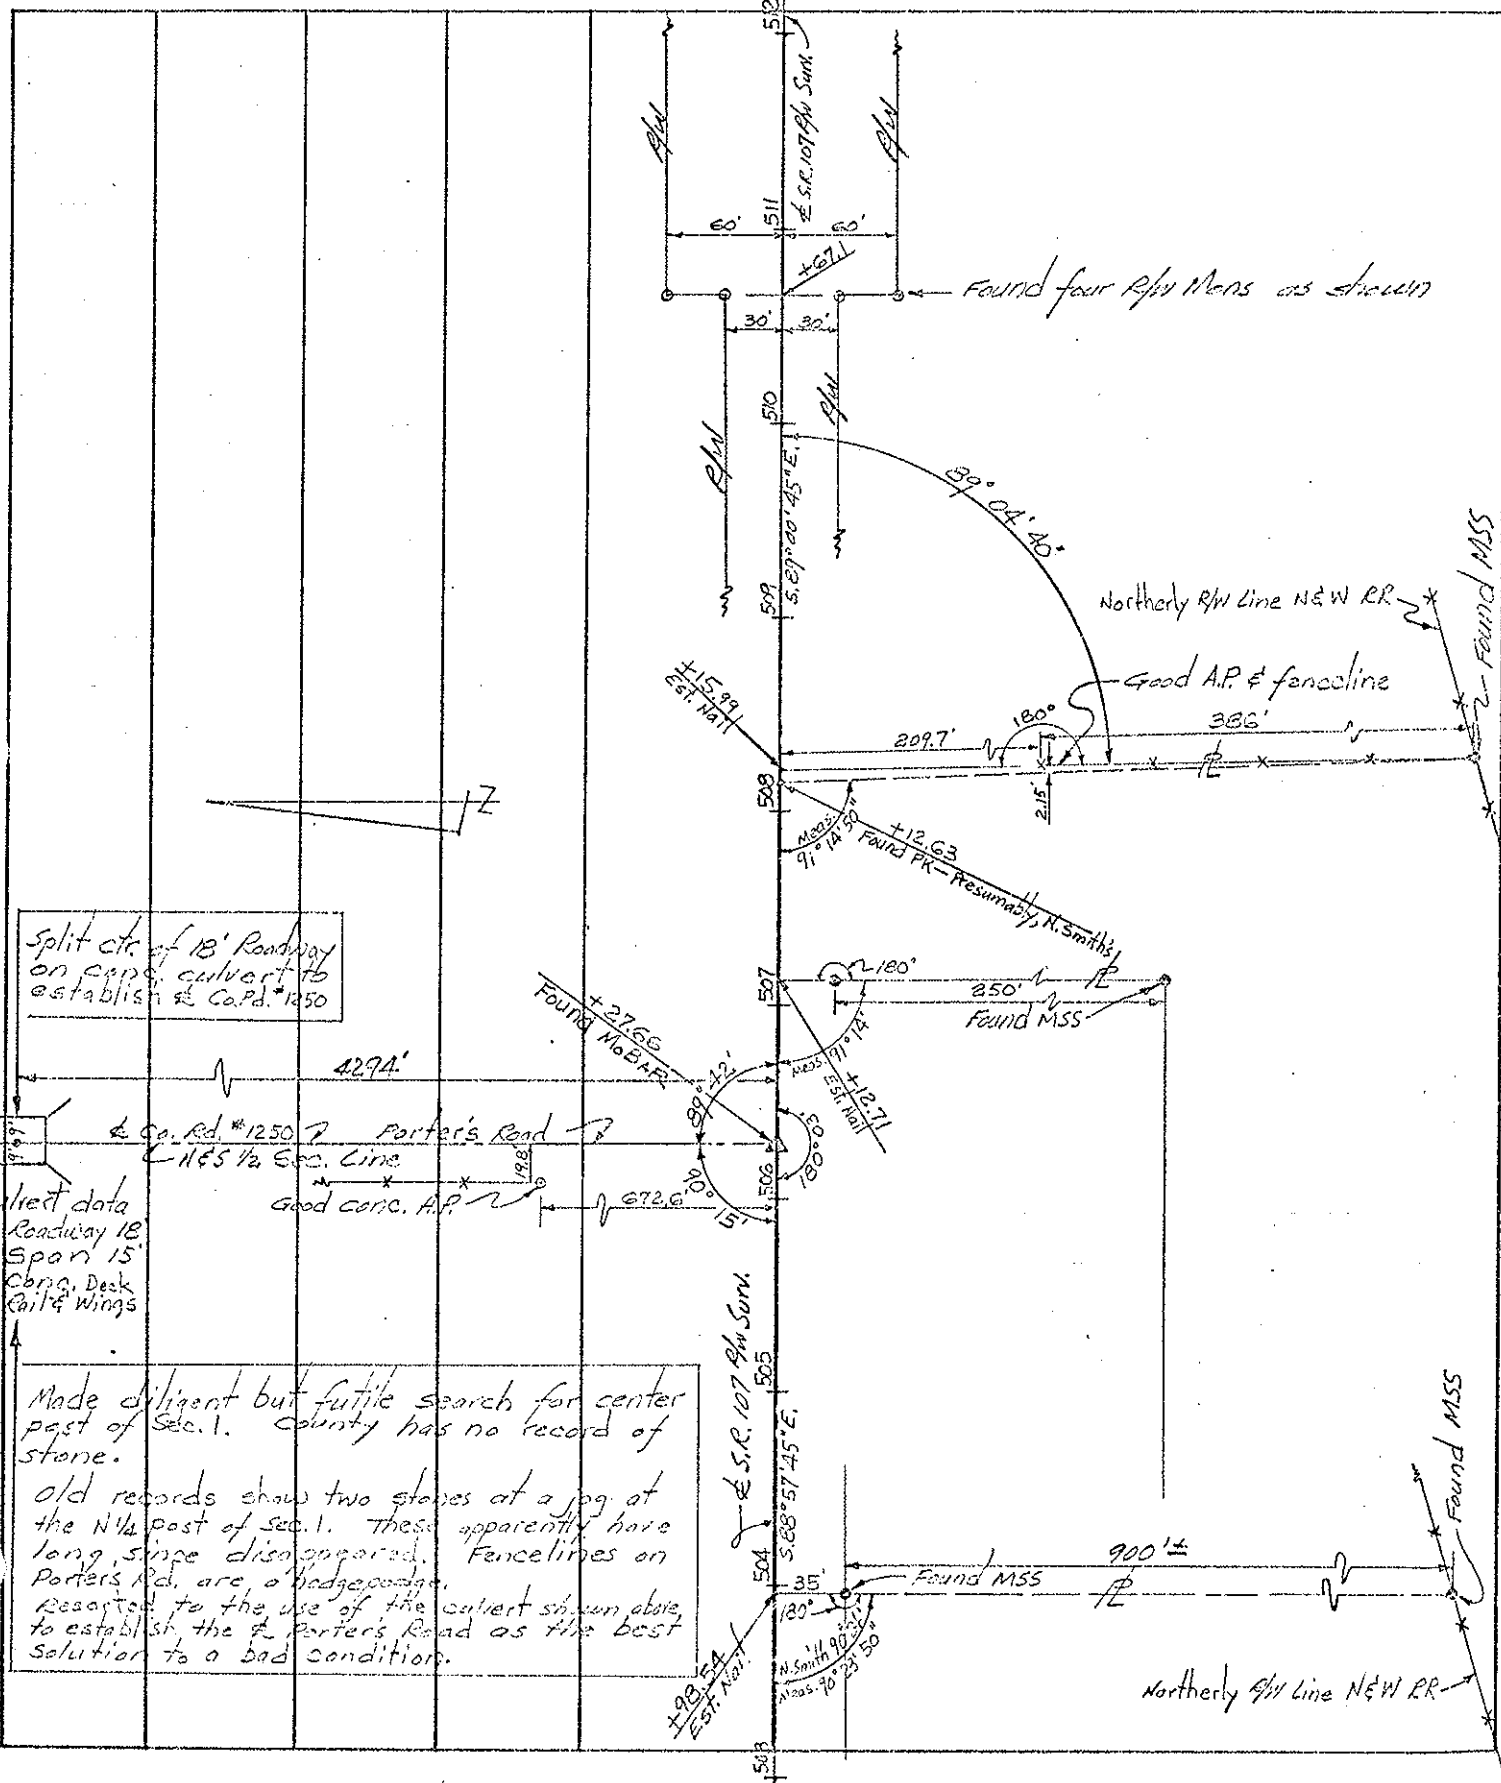 512
℄ S.R. 107 R/W Surv.
R/W
R/W
511
60'
60'
+67.1
Found four R/W Mons as shown
30'
30'
R/W
R/W
510
S.89°00'45"E.
89°04'40"
509
Northerly R/W Line N&W RR
Found MSS
+15.99
Est. Nail
Good A.P. & fenceline
180°
386'
209.7'
PL
2.15'
508
Meas.
91°14'50"
+12.63
Found PK - Presumably, N. Smith's
Z
Split ctr. of 18' Roadway
on conc. culvert to
establish ℄ Co. Rd. #1250
507
180°
PL
250'
Found MSS
Meas. 91°14'
+12.71
Est. Nail
+27.66
Found MoBAR
4294'
89°42'
180°03'
℄ Co. Rd. #1250
Porter's Road
N&S 1/2 Sec. Line
19.8'
Good conc. A.P.
672.6'
90°15'
506
lvert data
Roadway 18'
Span 15'
Conc. Deck
Rail & Wings
℄ S.R. 107 R/W Surv.
505
S.88°57'45"E.
Made diligent but futile search for center
post of Sec. 1. County has no record of
stone.
Old records show two stones at a jog at
the N1/4 post of Sec. 1. These apparently have
long since disappeared. Fencelines on
Porters Rd. are a hodgepodge.
Resorted to the use of the culvert shown above,
to establish the ℄ Porter's Road as the best
solution to a bad condition.
504
35'
180°
Found MSS
900'±
PL
Found MSS
N. Smith 90°
Meas. 90°23'50"
+98.54
Est. Nail
Northerly R/W Line N&W RR
503